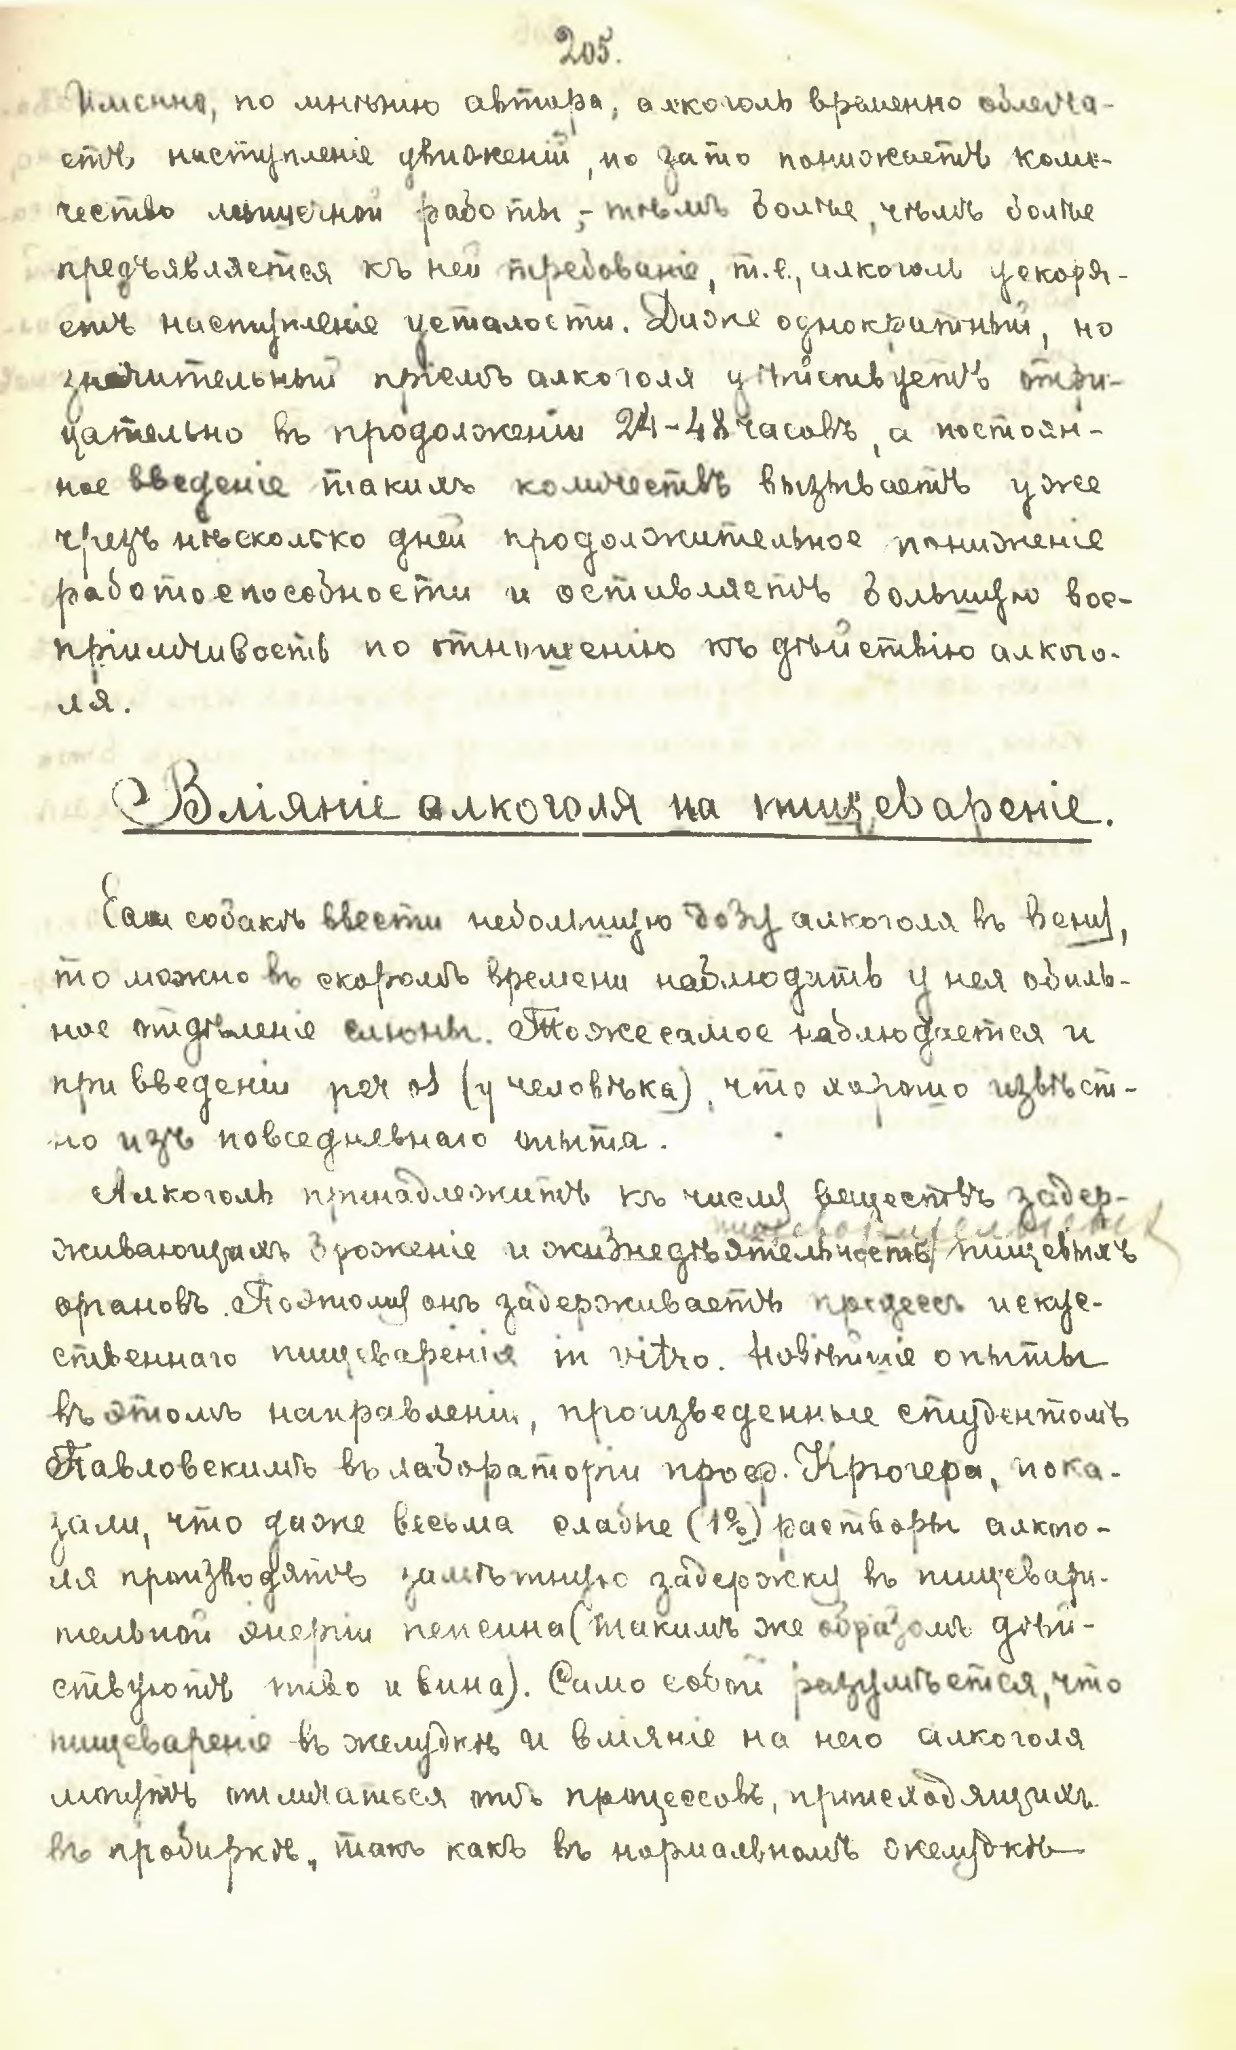 205.
Именно, по мнѣнію автора, алкоголь временно облегча-
етъ наступленіе движеній, но зато понижаетъ коли-
чество мышечной работы, - тѣмъ болѣе, чѣмъ болѣе
предъявляется къ ней требованіе, т.е., алкоголь ускоря-
етъ наступленіе усталости. Даже однократный, но
значительный пріемъ алкоголя дѣйствуетъ отри-
цательно въ продолженіи 24-48 часовъ, а постоян-
ное введеніе такихъ количествъ вызываетъ уже
чрезъ нѣсколько дней продолжительное пониженіе
работоспособности и оставляетъ большую вос-
пріимчивость по отношенію къ дѣйствію алкого-
ля.
Вліяніе алкоголя на пищевареніе.
Если собакѣ ввести небольшую дозу алкоголя въ вену,
то можно въ скоромъ времени наблюдать у нея обиль-
ное отдѣленіе слюны. Тоже самое наблюдается и
при введеніи per os (у человѣка), что хорошо извѣст-
но изъ повседневнаго опыта.
Алкоголь принадлежитъ къ числу веществъ задер-
пищеварительныхъ
живающихъ броженіе и жизнедѣятельность пищевыхъ
органовъ. Поэтому онъ задерживаетъ процессъ искус-
ственнаго пищеваренія in vitro. Новѣйшіе опыты
въ этомъ направленіи, произведенные студентомъ
Павловскимъ въ лабораторіи проф. Крюгера, пока-
зали, что даже весьма слабые (1%) растворы алкого-
ля производятъ замѣтную задержку въ пищевари-
тельной энергіи пепсина (такимъ же образомъ дѣй-
ствуютъ пиво и вина). Само собой разумѣется, что
пищевареніе въ желудкѣ и вліяніе на него алкоголя
можетъ отличаться отъ процессовъ, происходящихъ
въ пробиркѣ, такъ какъ въ нормальномъ желудкѣ